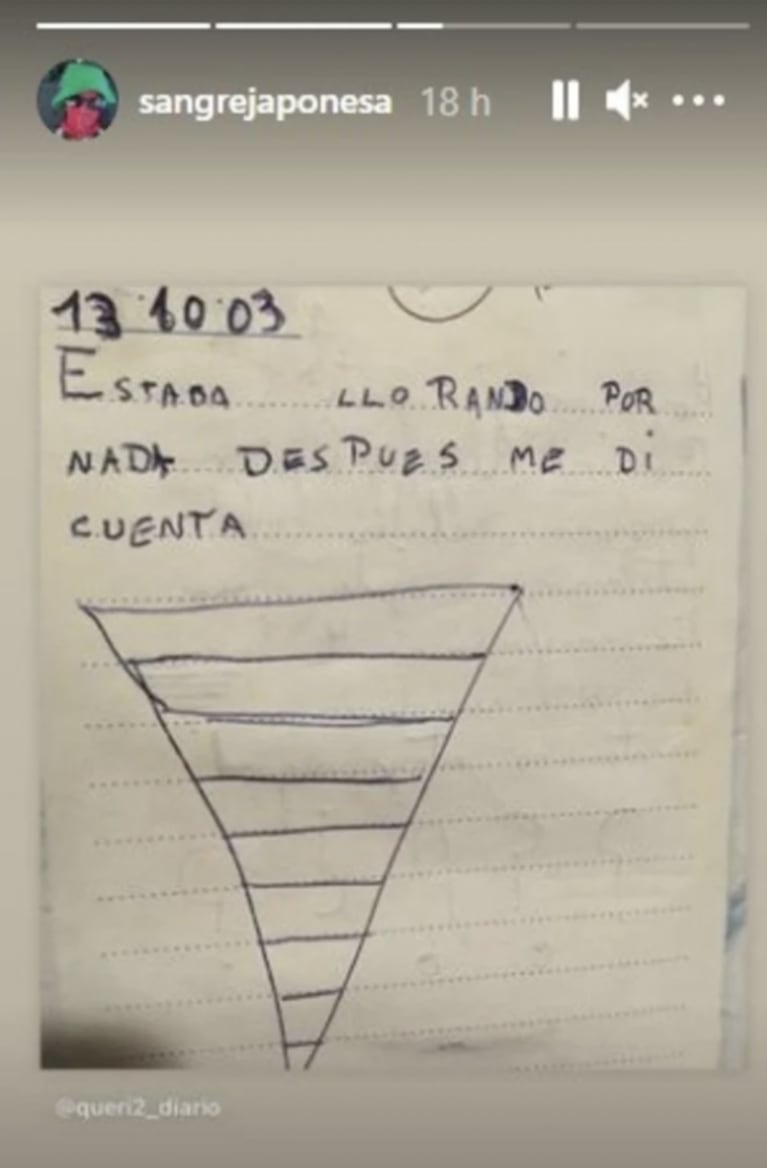 sangrejaponesa 18 h
13 10 03
ESTABA LLORANDO POR
NADA DESPUES ME DI
CUENTA
@queri2_diario